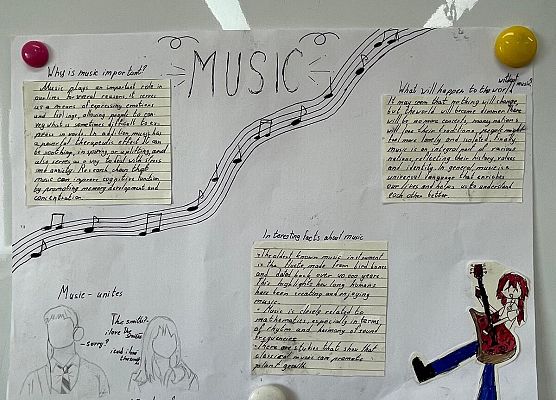 MUSIC
Why is music important?
Music plays an important role in
our lives for several reasons. It serves
as a means of expressing emotions
and feelings, allowing people to con-
vey what is sometimes difficult to ex-
press in words. In addition, music has
a powerful therapeutic effect. It can
be soothing, inspiring, or uplifting, and
also serves as a way to deal with stress
and anxiety. Research shows that
music can improve cognitive function
by promoting memory development and
concentration.
What will happen to the world
without music?
It may seem that nothing will change,
but the world will become dimmer. There
will be no more concerts, many nations
will lose their traditions, people might
feel more lonely and isolated. Finally,
music is an integral part of various
nations, reflecting their history, values
and identity. In general, music is a
universal language that enriches
our lives and helps us to understand
each other better.
Interesting facts about music
- The oldest known music instrument
is the flute, made from bird bones
and dated back over 40.000 years.
This highlights how long humans
have been creating and enjoying
music.
- Music is closely related to
mathematics, especially in terms
of rhythm and harmony of sound
frequencies
- There are studies that show that
classical music can promote
plant growth.
Music - unites
The smiths?
i love the
smiths
- sorry?
i said i love
the smiths